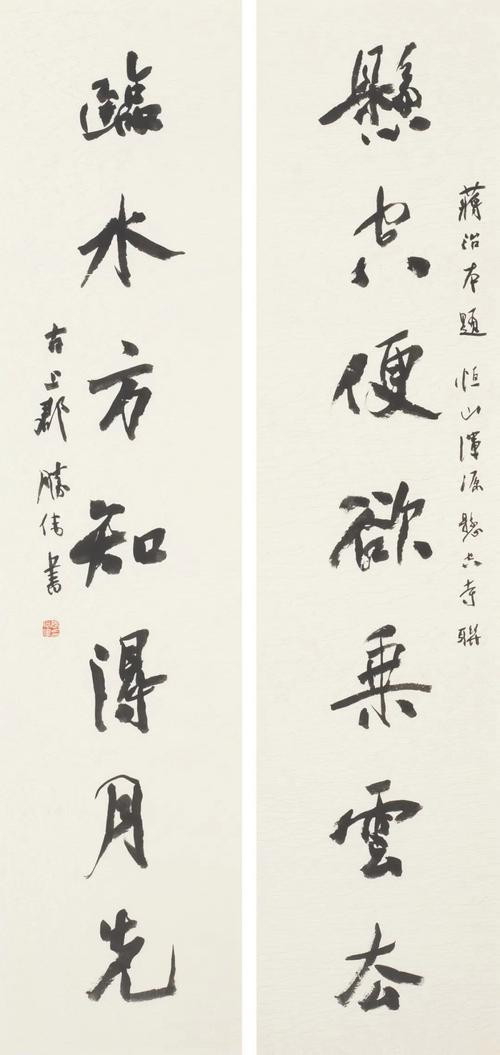 蔣治本題 恒山渾源懸空寺聯
懸空便欲乘雲去
臨水方知得月先
古上郡 勝偉書